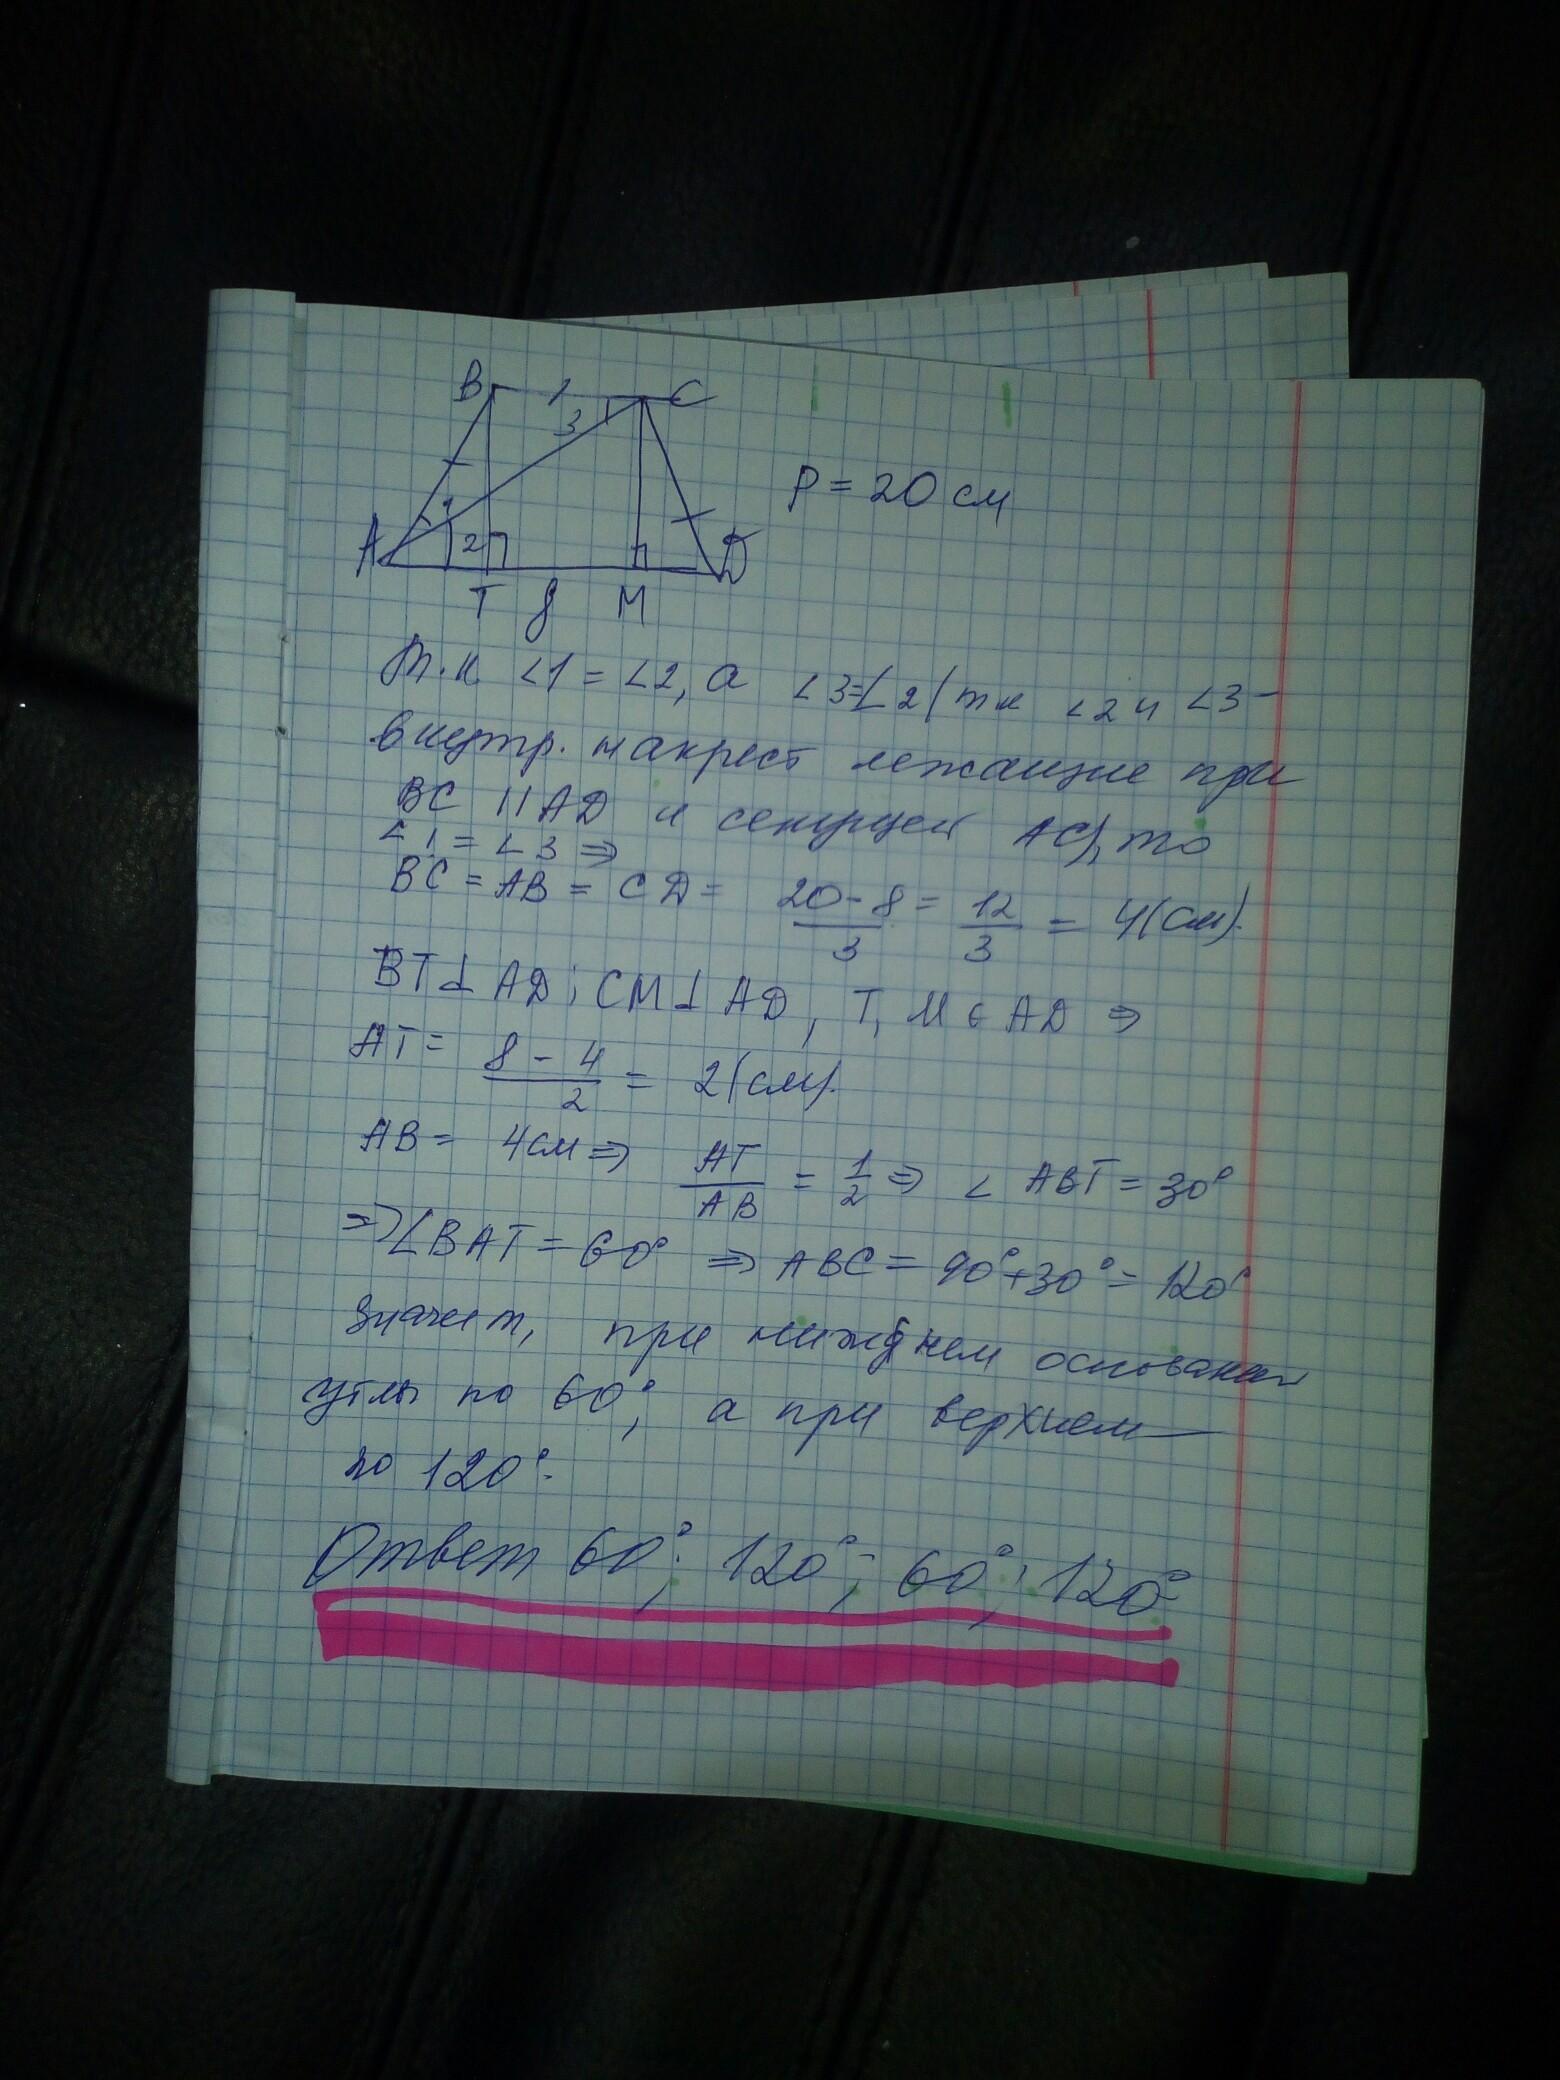 B 1 C
3
1
A 2 D
T 8 M
P = 20 см
т.к ∠1 = ∠2, а ∠3=∠2 (т к ∠2 и ∠3 –
внутр. накрест лежащие при
BC || AD и секущей AC), то
∠1 = ∠3 ⇒
BC = AB = CD = 20-8/3 = 12/3 = 4(см).
BT⊥AD; CM⊥AD, T, M ∈ AD ⇒
AT = 8-4/2 = 2(см).
AB = 4см ⇒ AT/AB = 1/2 ⇒ ∠ABT = 30°
⇒ ∠BAT = 60° ⇒ ABC = 90°+30° = 120°
значит, при нижнем основании
углы по 60°, а при верхнем –
по 120°.
Ответ 60°; 120°; 60°; 120°